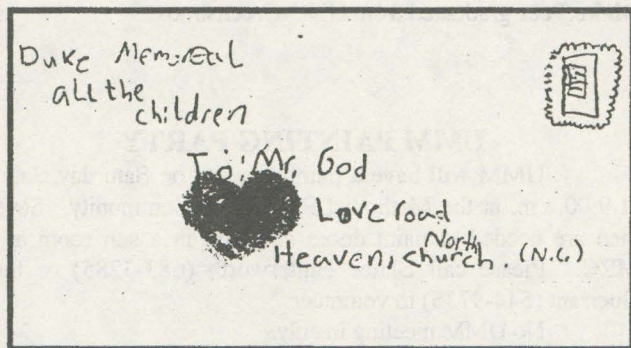 Duke Memoreal
all the
children
To: Mr. God
Love road
Heaven, North church (N.C.)